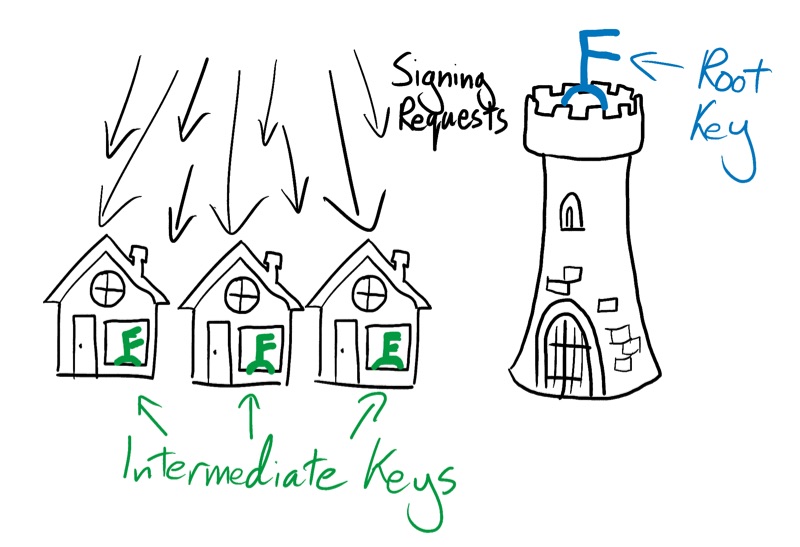 Signing
Requests
Root
Key
Intermediate Keys